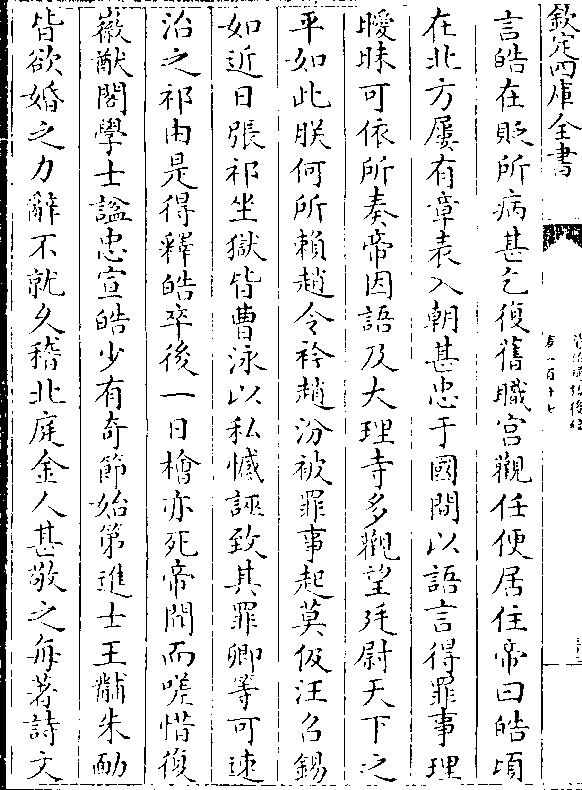 欽定四庫全書
言皓在貶所病甚乞復舊職宮觀任便居住帝曰皓頃
在北方屢有章表入朝甚忠于國間以語言得罪事理
曖昧可依所奏帝因語及大理寺多觀望廷尉天下之
平如此朕何所賴趙令衿趙汾被罪事起莫伋汪召錫
如近日張祁坐獄皆曹泳以私憾誣致其罪卿等可速
治之祁由是得釋皓卒後一日檜亦死帝聞而嗟惜復
徽猷閣學士諡忠宣皓少有奇節始第進士王黼朱勔
皆欲婚之力辭不就久稽北庭金人甚敬之毎著詩文